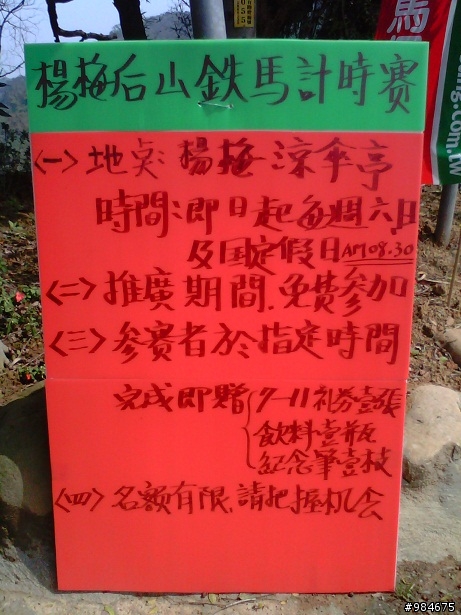 楊梅后山鉄馬計時賽
<一>地点:楊梅涼傘亭
時間:即日起每週六日
及国定假日AM08.30
<二>推廣期間.免費參加
<三>參賽者於指定時間
完成即贈 7-11礼券壹張
飲料壹瓶
紀念筆壹枝
<四>名額有限.請把握机会
馬
ng.com.tw
#984675